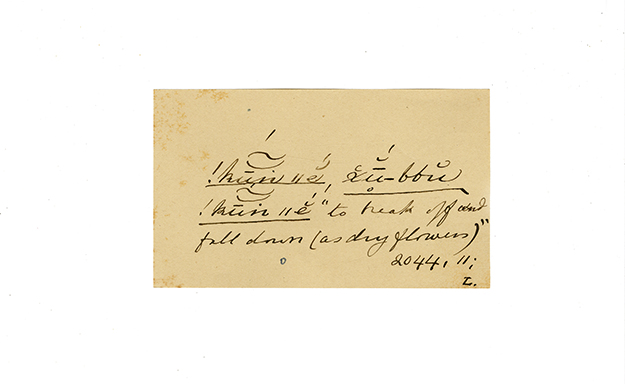 !kūn ǁĕ, x̆ū-bbŭ
!kūn ǁĕ "to break off and
fall down (as dry flowers)"
2044. 11;
L.